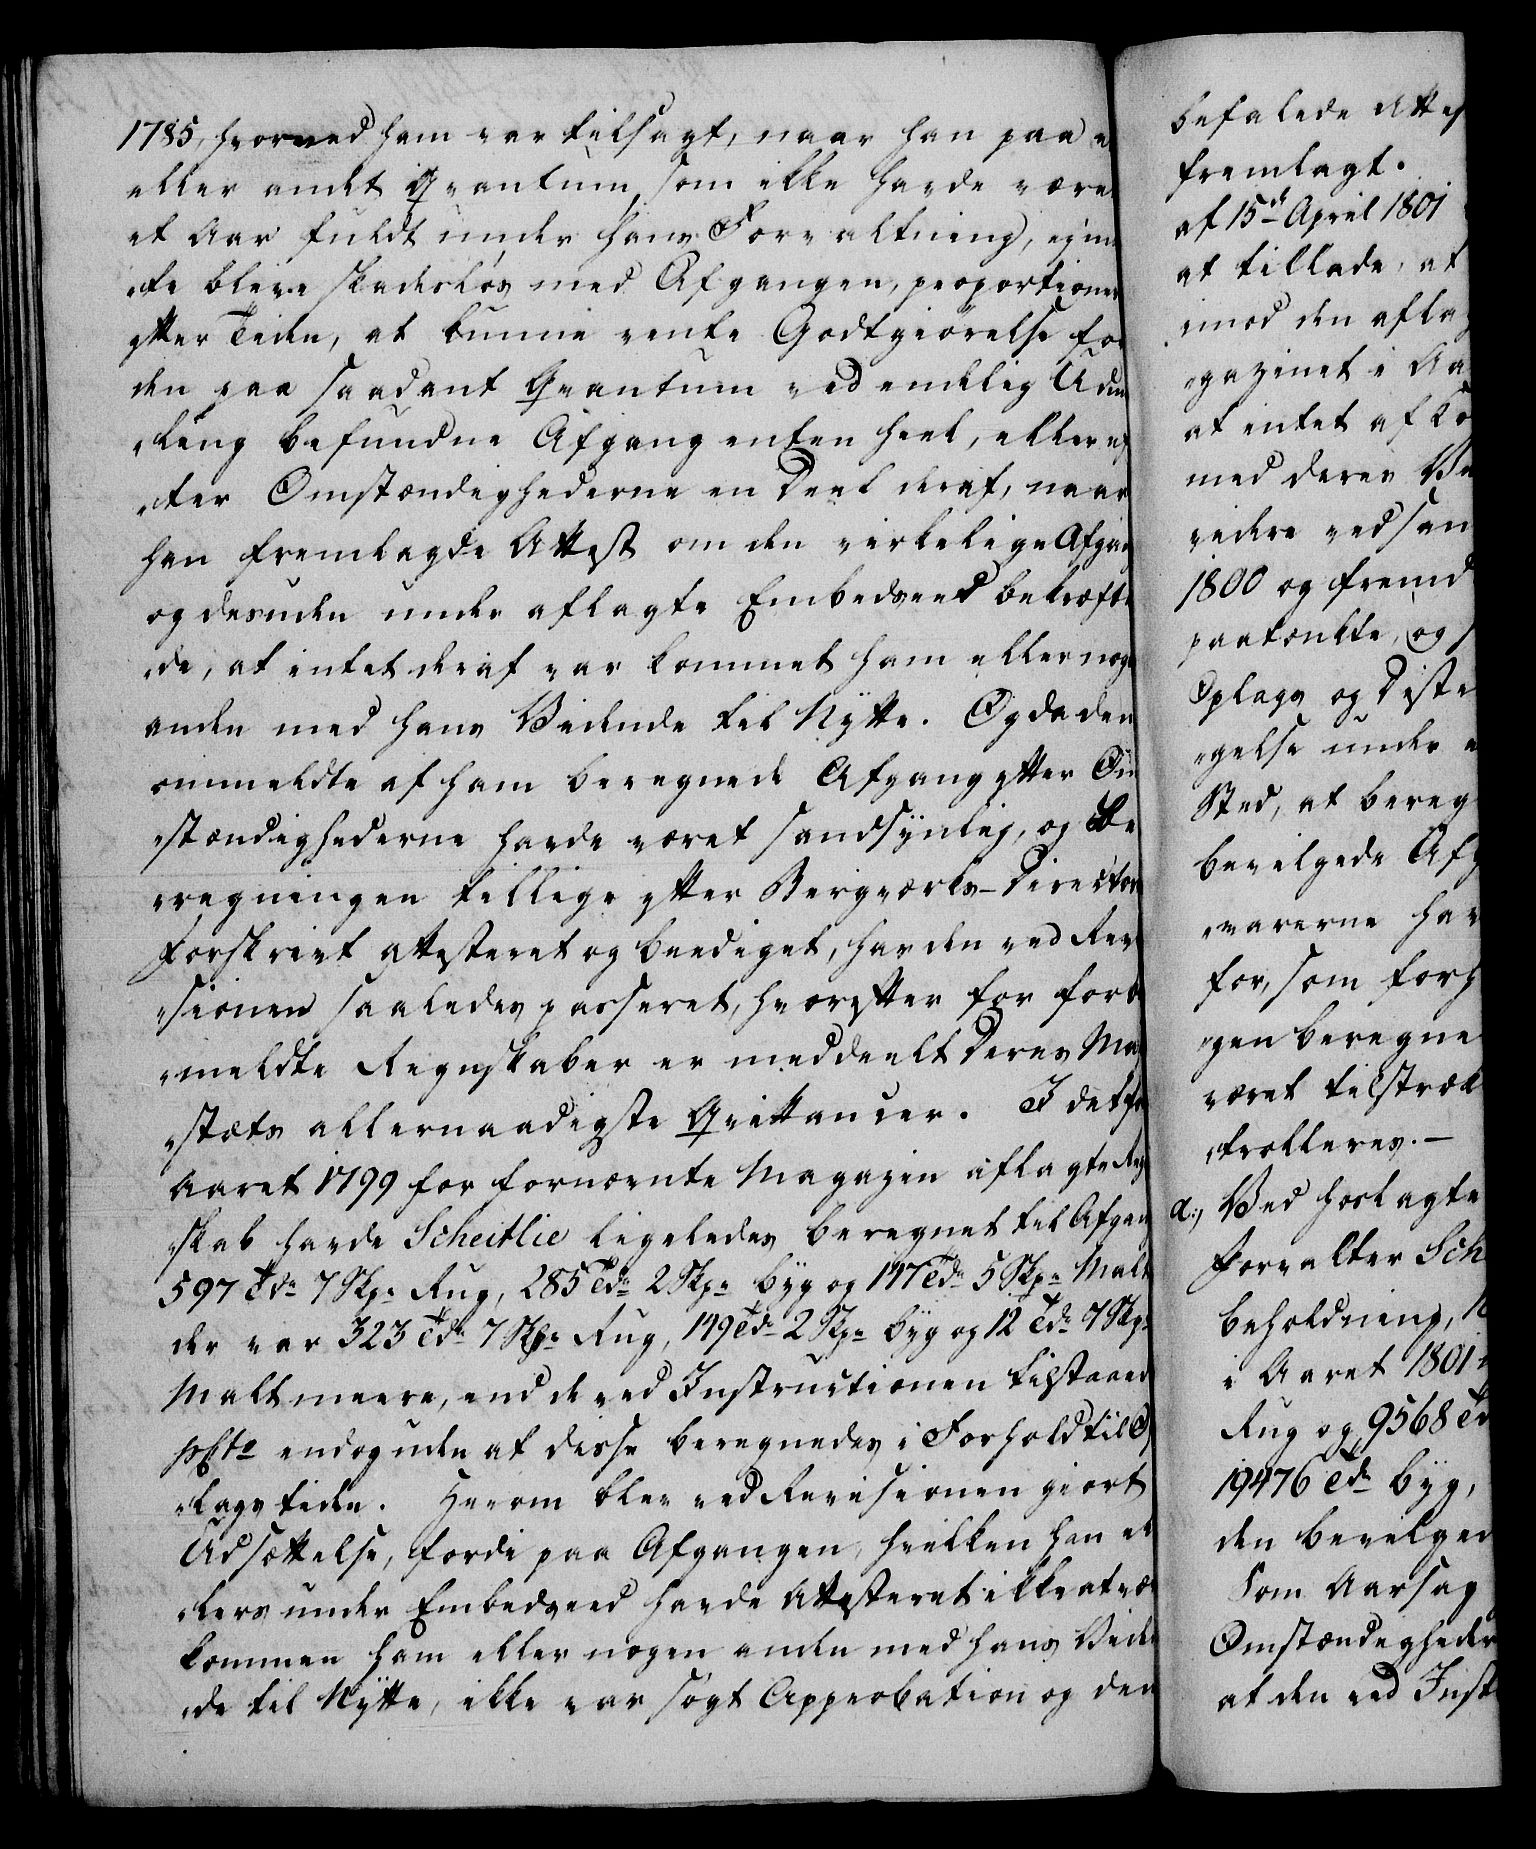 1785, hvorved ham var tilsagt, naar han paa e
eller andet Qvantum, som ikke havde være
et Aar fuldt under hans Forvaltning, ej
te blive skadesløs med Afgangen, proportioner
efter Tiden, at kunne vente Godtgiörelse for
den paa saadant Qvantum ved endelig Udm
ling befundne Afgang enten heel, eller ef
ter Omstændighederne en Deel deraf, naar
han fremlagde Attest om den virkelige Afgan
og desuden under aflagte Embedseed bekræfte
de, at intet deraf var kommet ham eller nog
anden med hans Vidende til Nytte. Og da den
ommeldte af ham beregnede Afgang efter Om
stændighederne havde været sandsynlig, og Be
regningen tillige efter Bergværks-Directo
Forskrivt attesteret og beediget, har den ved Rev
sionen saaledes passeret, hvorefter for for
meldte Regnskaber er meddeelt Deres Ma
stæts allernaadigste Qvittancer. I det for
Aaret 1799 for fornævnte Magazin aflagte Reg
skab havde Scheitlie ligeledes beregnet til Afgan
597 Tdr 7 Skp. Rug, 285 Tdr 2 Skp. byg og 147 Tdr 5 Skp. Malt
der var 323 Tdr 7 Skp. Rug, 149 Tdr 2 Skp. byg og 12 Tdr 7 Skp.
Malt meere, end de ved Instructionen tilstaaed
pCto endog uden at disse beregnedes i Forhold til O
lags tiden. Herom blev ved Revisionen giort
Udsættelse, fordi paa Afgangen, hvilken han el
lers under Embedseed havde Attesteret ikke at væ
kommen ham eller nogen anden med hans Viden
de til Nytte, ikke var søgt Approbation og den
befalede Attes
fremlagt.
af 15de April 1801
at tillade, at
imod den afla
gazinet i Aa
at intet af Ko
med deres Vi
videre ved san
1800 og fremd
paatænkte, og
Oplags og Diste
gelse under
Sted, at bereg
bevilgede Afg
varerne hav
for, som forh
gen beregne
været tilstræk
trolleres. -
a:, Ved hoslagte
Forvalter Sch
beholdning,
i Aaret 1801
Rug og 9568 Td
19476 Tdr byg,
den bevilged
Som Aarsag
Omstændigheder
at den ved Inst